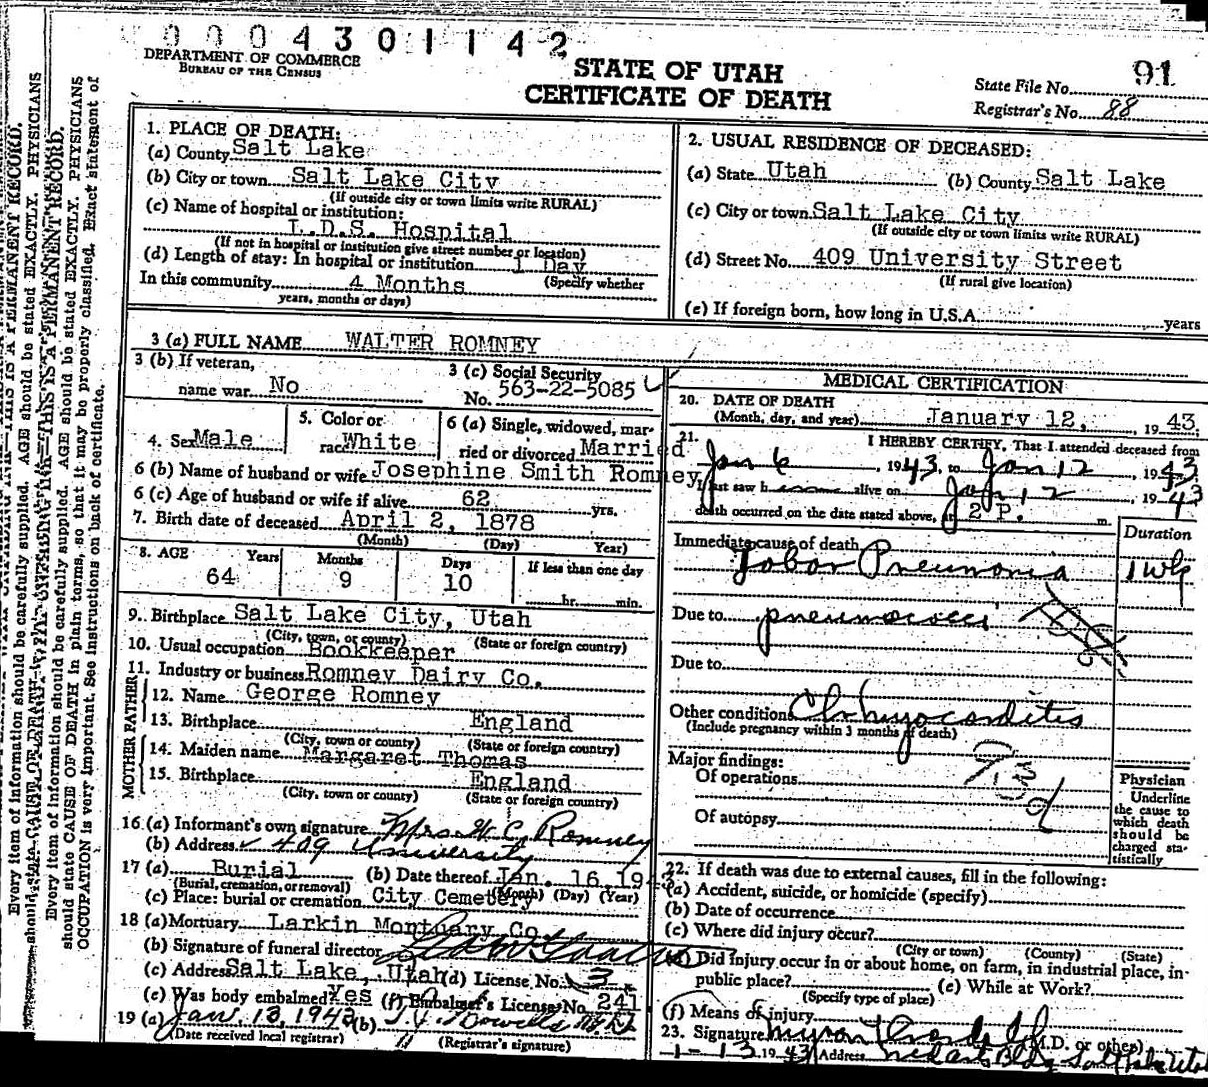 0004301142
DEPARTMENT OF COMMERCE
BUREAU OF THE CENSUS
STATE OF UTAH
CERTIFICATE OF DEATH
State File No. 91
Registrar's No. 88
Every item of information should be carefully supplied. AGE should be stated EXACTLY. PHYSICIANS
should state CAUSE OF DEATH in plain terms, so that it may be properly classified. Exact statement of
OCCUPATION is very important. See instructions on back of certificate.
1. PLACE OF DEATH:
(a) County Salt Lake
(b) City or town Salt Lake City
(If outside city or town limits write RURAL)
(c) Name of hospital or institution:
L.D.S. Hospital
(If not in hospital or institution give street number or location)
(d) Length of stay: In hospital or institution 1 Day
In this community 4 Months (Specify whether
years, months or days)
2. USUAL RESIDENCE OF DECEASED:
(a) State Utah (b) County Salt Lake
(c) City or town Salt Lake City
(If outside city or town limits write RURAL)
(d) Street No. 409 University Street
(If rural give location)
(e) If foreign born, how long in U.S.A. years
3 (a) FULL NAME WALTER ROMNEY
3 (b) If veteran,
name war No
3 (c) Social Security
No. 563-22-5085
4. Sex Male
5. Color or
race White
6 (a) Single, widowed, mar-
ried or divorced Married
6 (b) Name of husband or wife Josephine Smith Romney
6 (c) Age of husband or wife if alive 62 yrs.
7. Birth date of deceased April 2, 1878
(Month) (Day) Year)
8. AGE Years Months Days If less than one day
64 9 10
hr. min.
9. Birthplace Salt Lake City, Utah
(City, town, or county) (State or foreign country)
10. Usual occupation Bookkeeper
11. Industry or business Romney Dairy Co.
FATHER
12. Name George Romney
13. Birthplace England
(City, town or county) (State or foreign country)
MOTHER
14. Maiden name Margaret Thomas
15. Birthplace England
(City, town or county) (State or foreign country)
16 (a) Informant's own signature Mrs. W. C. Romney
(b) Address 409 University
17 (a) Burial (b) Date thereof Jan. 16 194
(Burial, cremation, or removal) (Month) (Day) (Year)
(c) Place: burial or cremation City Cemetery
18 (a) Mortuary Larkin Mortuary Co.
(b) Signature of funeral director
(c) Address Salt Lake, Utah (d) License No. 3
(e) Was body embalmed? Yes (f) Embalmer's License No. 241
19 (a) Jan. 13, 1943 (b)
(Date received local registrar) (Registrar's signature)
MEDICAL CERTIFICATION
20. DATE OF DEATH
(Month, day, and year) January 12, 19 43
21. I HEREBY CERTIFY, That I attended deceased from
Jan 6, 1943, to Jan 12, 1943
I last saw him alive on Jan 12, 1943
death occurred on the date stated above, at 2 P. m.
Immediate cause of death Duration
Lobar Pneumonia 1 wk
Due to pneumococci
Due to
Other conditions Ch myocarditis
(Include pregnancy within 3 months of death)
Major findings:
Of operations
Of autopsy
93d
Physician
Underline
the cause to
which death
should be
charged sta-
tistically
22. If death was due to external causes, fill in the following:
(a) Accident, suicide, or homicide (specify)
(b) Date of occurrence
(c) Where did injury occur?
(City or town) (County) (State)
(d) Did injury occur in or about home, on farm, in industrial place, in-
public place? (e) While at Work?
(Specify type of place)
(f) Means of injury
23. Signature (M.D. or other)
1-13 1943 Address Med Arts Bldg Salt Lake Utah